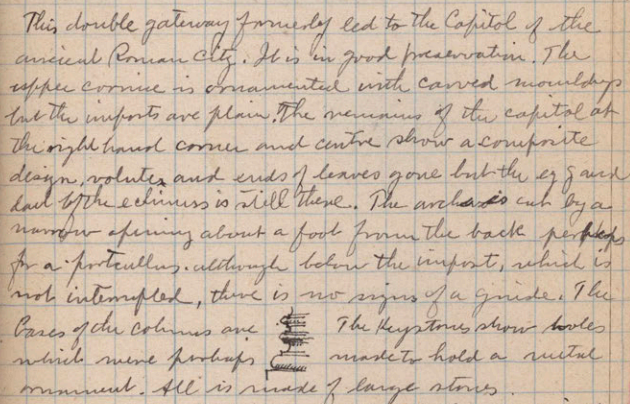 This double gateway formerly led to the Capitol of the
ancient Roman City. It is in good preservation. The
upper cornice is ornamented with carved mouldings
but the imposts are plain. The remains of the capital at
the right hand corner and centre show a composite
design, volutes and ends of leaves gone but the egg and
dart of the echinus is still there. The arch is cut by a
narrow opening about a foot from the back perhaps
for a portcullus. although below the impost, which is
not interrupted, there is no signs of a guide. The
bases of the columns are The Keystones show holes
which were perhaps made to hold a metal
ornament. All is made of large stones.